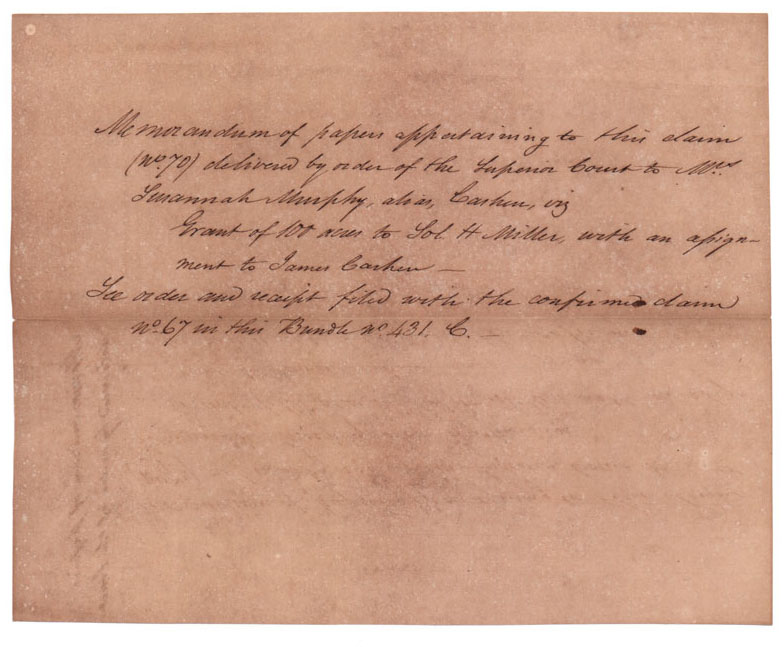 Memorandum of papers appertaining to this claim
(No. 70) delivered by order of the Superior Court to Mrs.
Susannah Murphy, alias, Cashen, viz
Grant of 100 acres to Sol. H Miller, with an assign-
ment to James Cashen —
See order and receipt filed with the confirmed claim
No. 67 in this Bundle No. 431. C. —